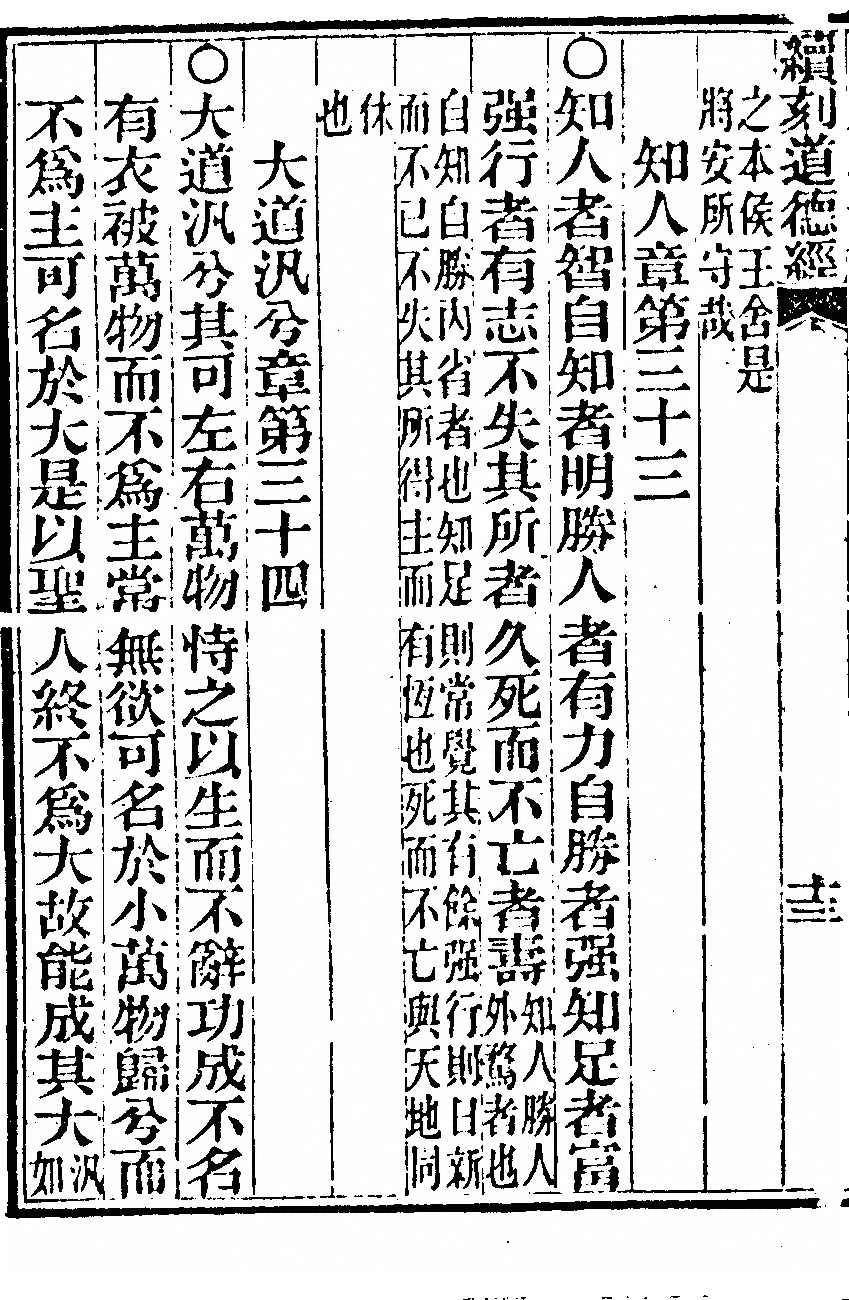 續刻道德經
十三
之本侯王舍是
將安所守哉
知人章第三十三
〇知人者智自知者明勝人者有力自勝者强知足者富
强行者有志不失其所者久死而不亡者壽知人勝人
外騖者也
自知自勝内省者也知足則常覺其有餘强行則日新
而不已不失其所得主而有恆也死而不亡與天地同
休
也
大道汎兮章第三十四
〇大道汎兮其可左右萬物恃之以生而不辭功成不名
有衣被萬物而不爲主常無欲可名於小萬物歸兮而
不爲主可名於大是以聖人終不爲大故能成其大汎
如